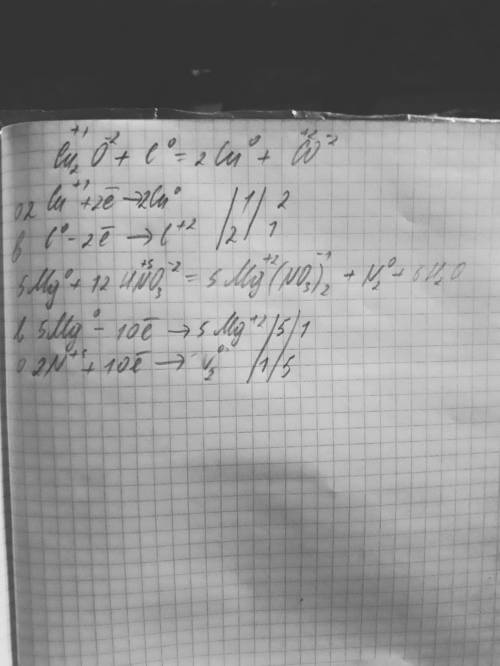 Cu₂⁺¹O⁻² + C⁰ = 2Cu⁰ + C⁺²O⁻²
о 2Cu⁺¹ + 2ē → 2Cu⁰ | 1 | 2
в C⁰ - 2ē → C⁺² | 2 | 1
5Mg⁰ + 12HN⁺⁵O₃⁻² = 5Mg⁺²(NO₃)₂⁻¹ + N₂⁰ + 6H₂O
в 5Mg⁰ - 10ē → 5Mg⁺² | 5 | 1
о 2N⁺⁵ + 10ē → N₂⁰ | 1 | 5